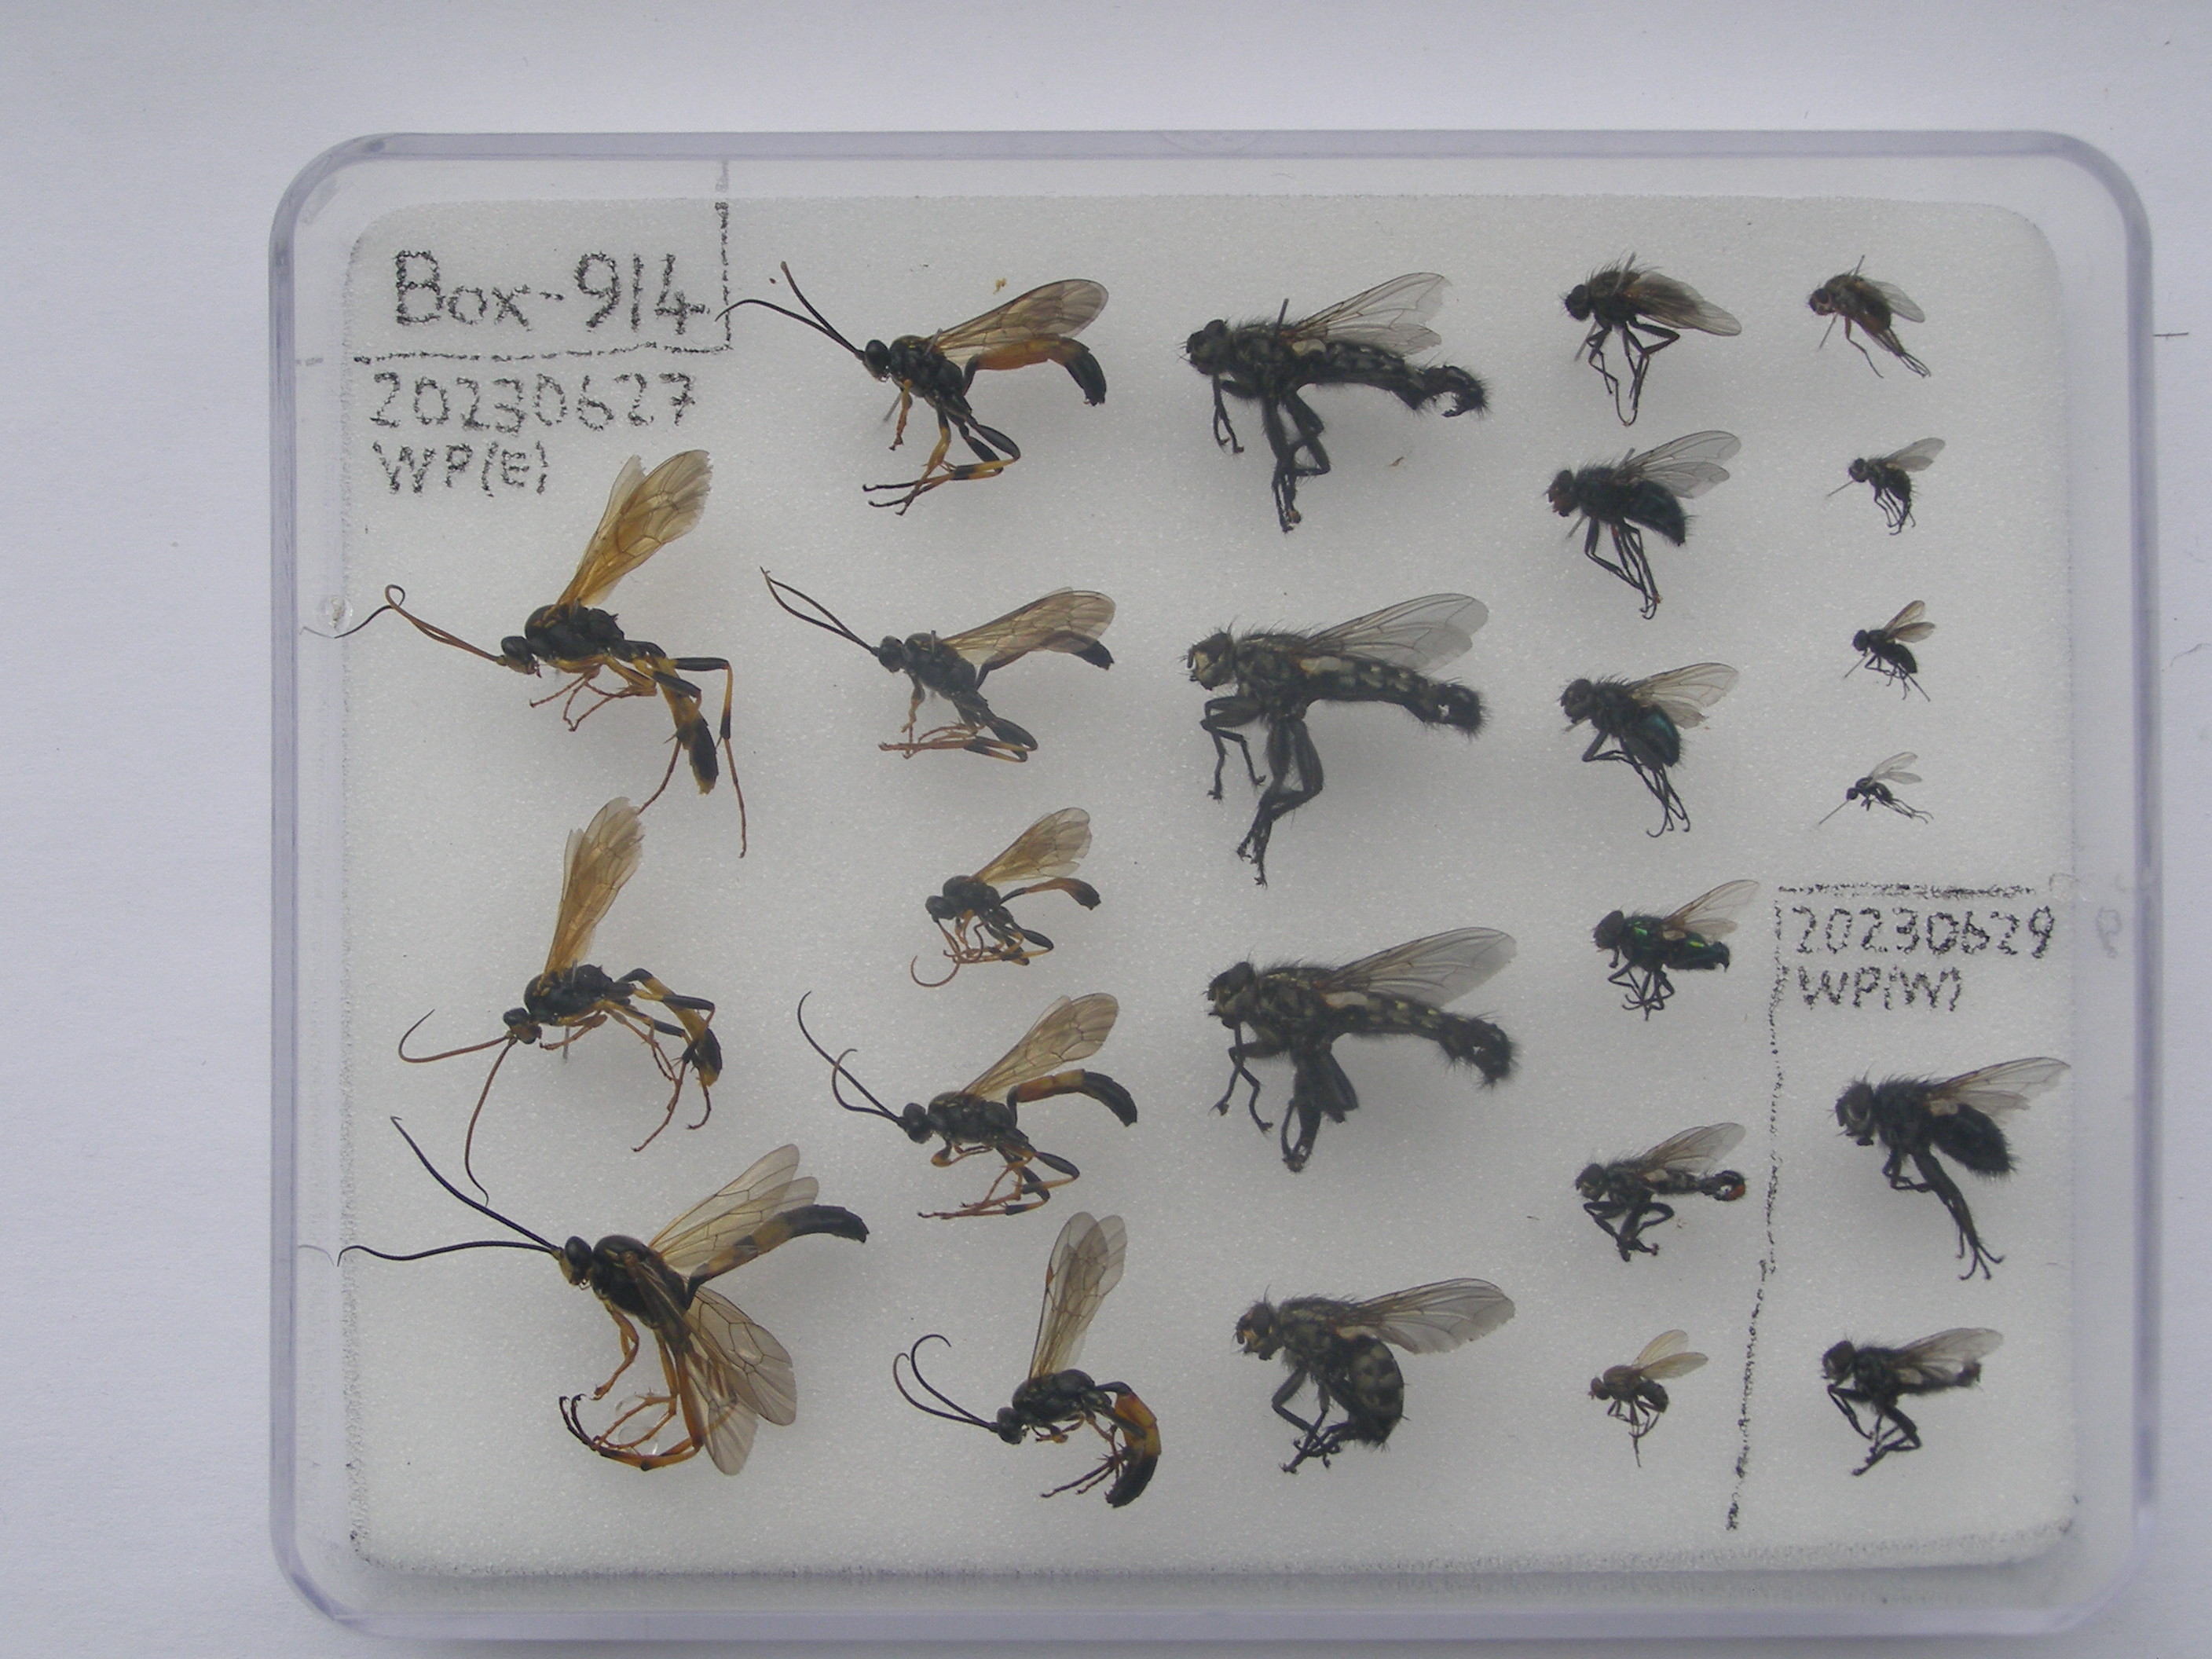 Box-914
20230627
WP(E)
20230629
WP(W)